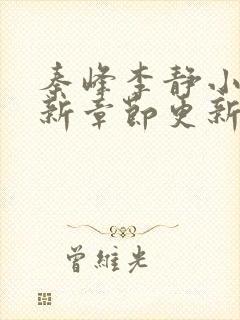 秦峰李静小
新章节更新
曾维光